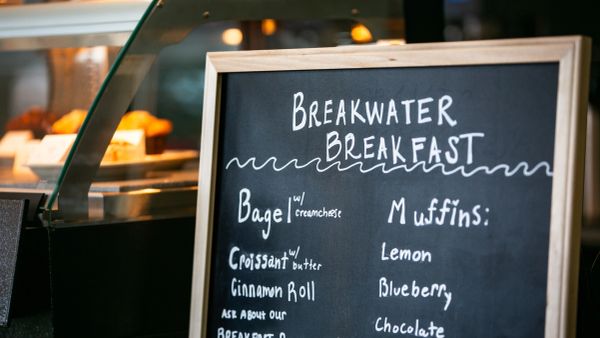 BREAKWATER
BREAKFAST
Bagel w/ creamcheese
Croissant w/ butter
Cinnamon Roll
ASK ABOUT OUR
BREAKFAST
Muffins:
Lemon
Blueberry
Chocolate